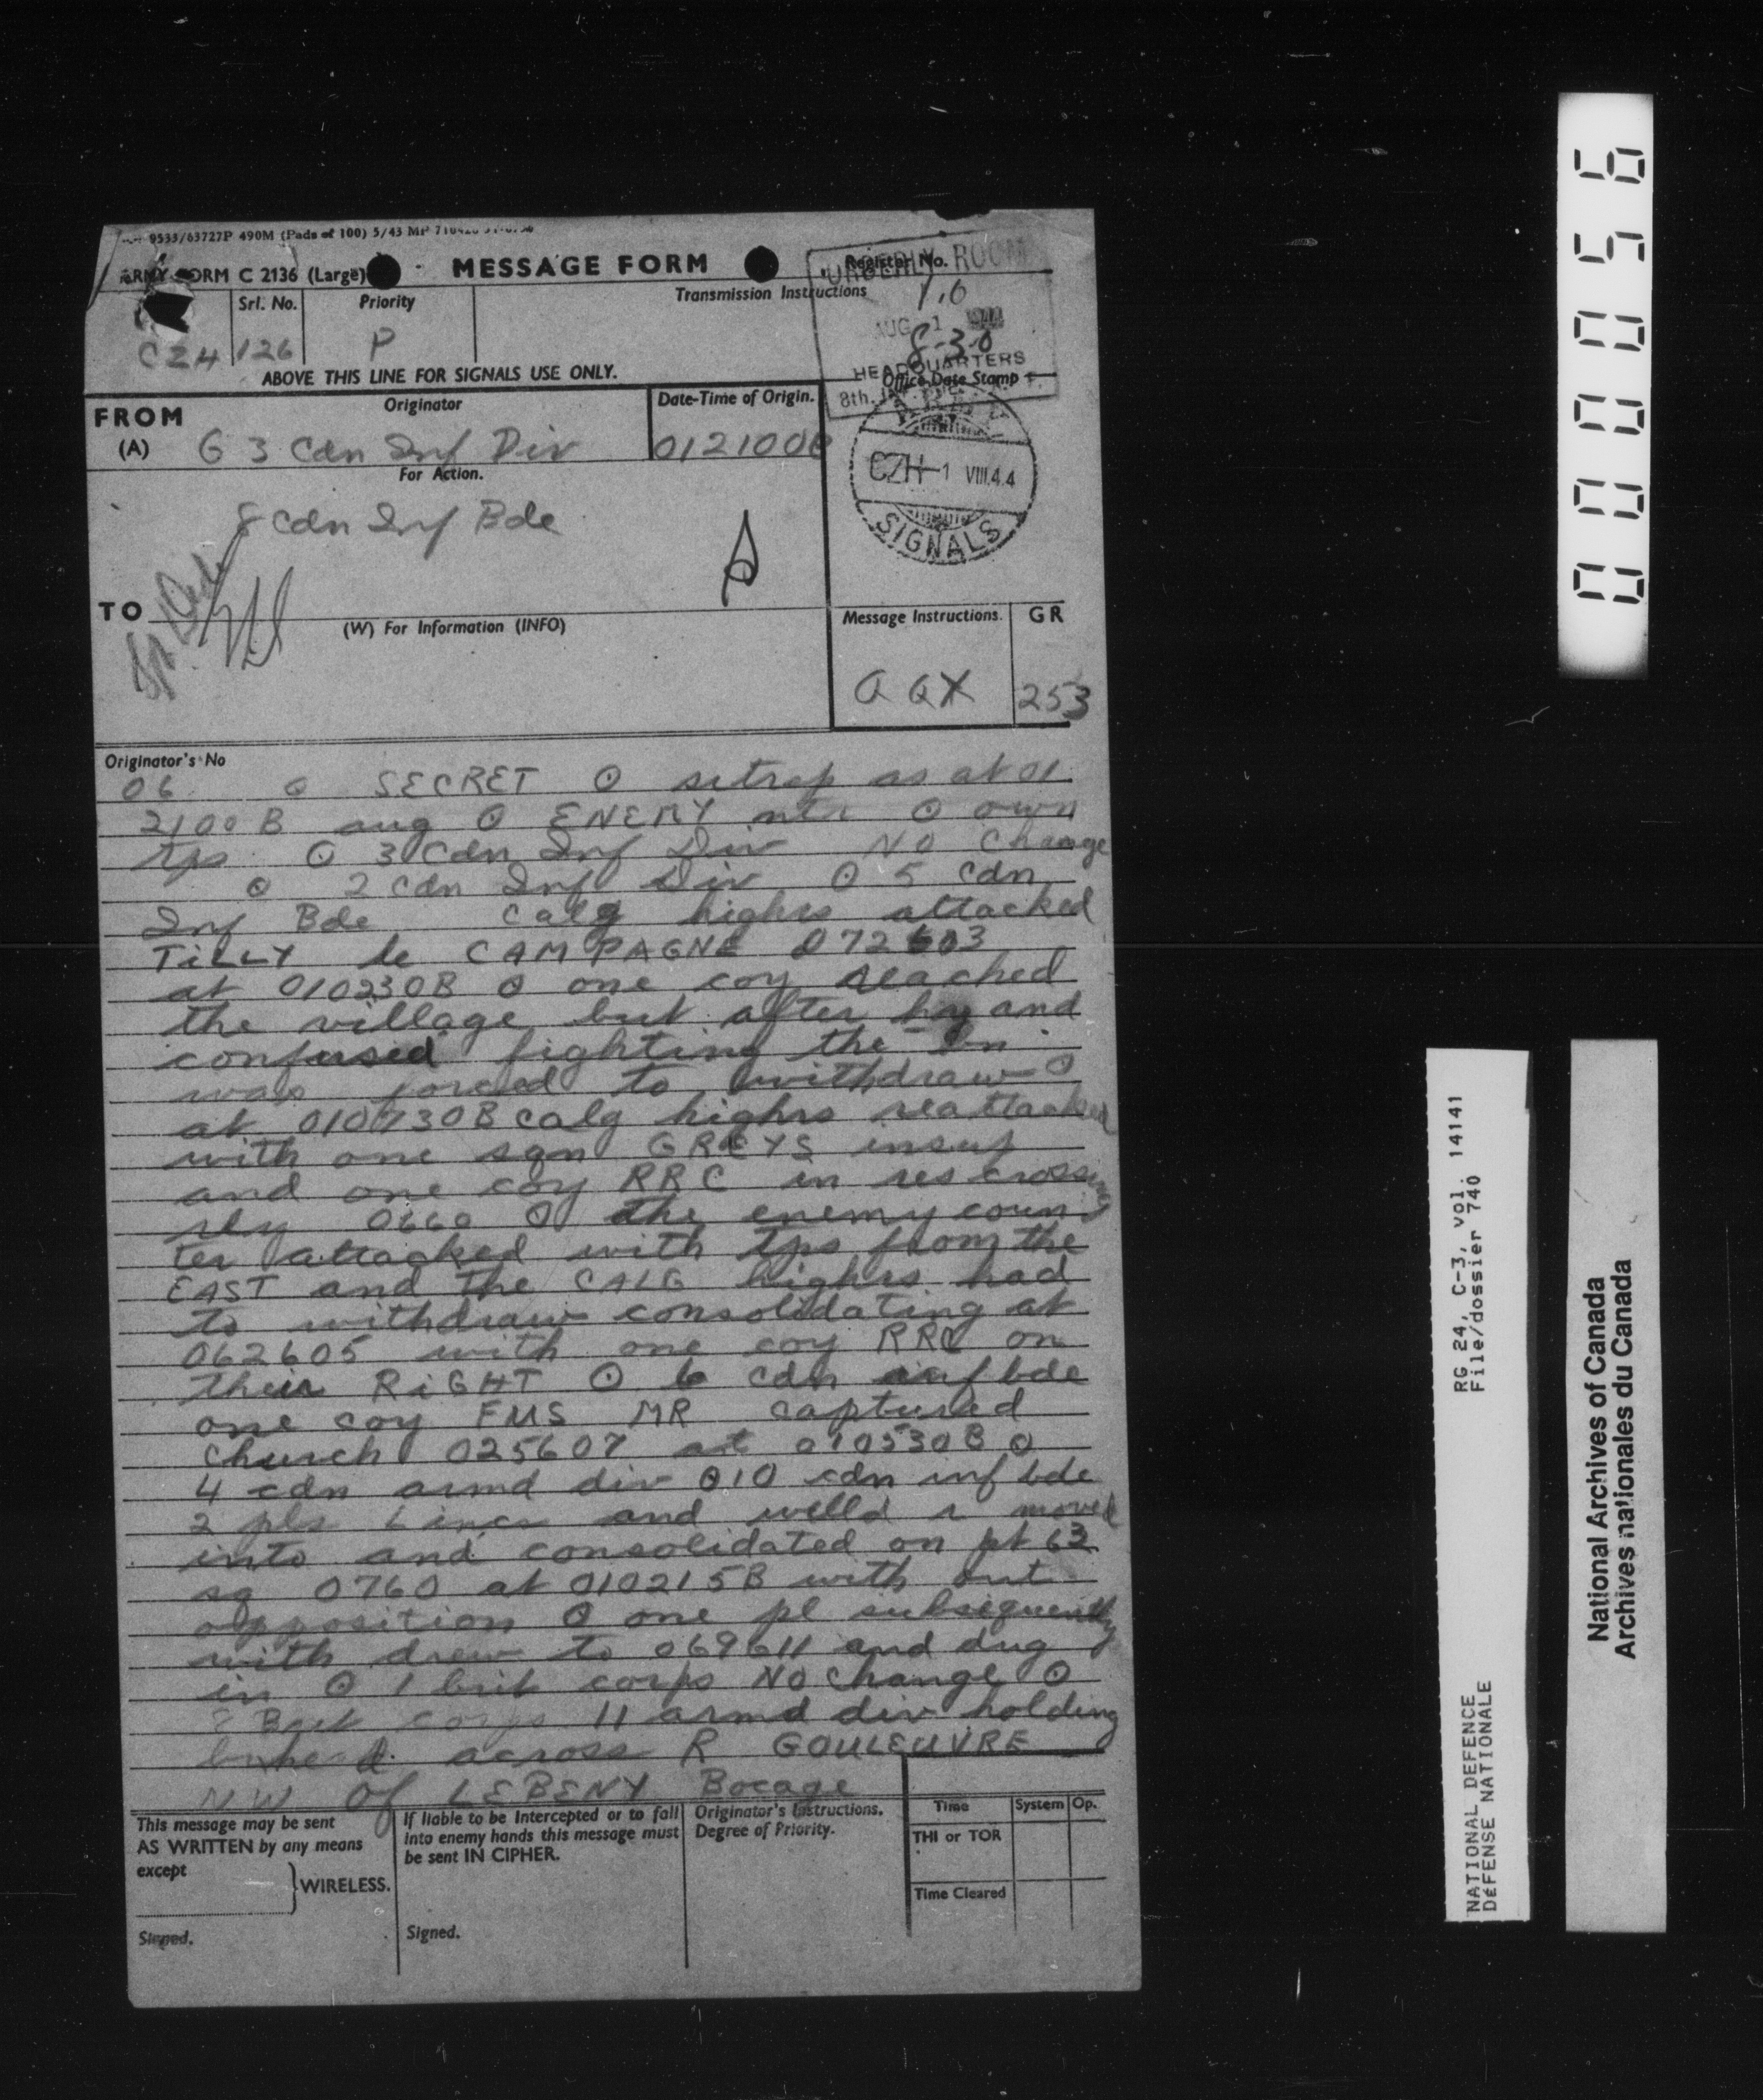 9533/63727P 490M (Pads of 100) 5/43 MP
ARMY FORM C 2136 (Large)
MESSAGE FORM
Register No.
ORDERLY ROOM
Srl. No.
Priority
Transmission Instructions
CZ4
126
P
AUG 1 1944
8-30
HEADQUARTERS
8th.
ABOVE THIS LINE FOR SIGNALS USE ONLY.
Office Date Stamp
FROM
(A)
Originator
G 3 Cdn Inf Div
Date-Time of Origin.
012100B
CZH-1 VIII.4.4
SIGNALS
For Action.
8 Cdn Inf Bde
TO
(W) For Information (INFO)
Message Instructions.
GR
253
Originator's No
06 O SECRET O sitrep as at 01
2100 B aug O ENEMY ntr O own
tps O 3 Cdn Inf Div NO Change
O 2 Cdn Inf Div O 5 Cdn
Inf Bde Calg highrs attacked
TILLY le CAMPAGNE 072603
at 010230B O one coy reached
the village but after hy and
confused fighting the bn
was forced to withdraw O
at 010730B calg highrs reattacked
with one sqn GREYS insup
and one coy RRC in res crossing
rly 0660 O the enemy coun
ter attacked with tps from the
EAST and the CALG highrs had
to withdraw consolidating at
062605 with one coy RRC on
their RIGHT O 6 cdn inf bde
one coy FUS MR captured
church 025607 at 010530B O
4 cdn armd div O 10 cdn inf bde
2 pls Lincs and welld r moved
into and consolidated on pt 63
sq 0760 at 010215B with out
opposition O one pl subsequently
with drew to 069611 and dug
in O 1 brit corps No change O
8 Brit corps 11 armd div holding
brhead across R GOULEUVRE
NW of LEBENY Bocage
This message may be sent
AS WRITTEN by any means
except
WIRELESS.
Signed.
If liable to be intercepted or to fall
into enemy hands this message must
be sent IN CIPHER.
Signed.
Originator's Instructions.
Degree of Priority.
Time
System
Op.
THI or TOR
Time Cleared
000056
RG 24, C-3, vol. 14141
File/dossier 740
NATIONAL DEFENCE
DÉFENSE NATIONALE
National Archives of Canada
Archives nationales du Canada